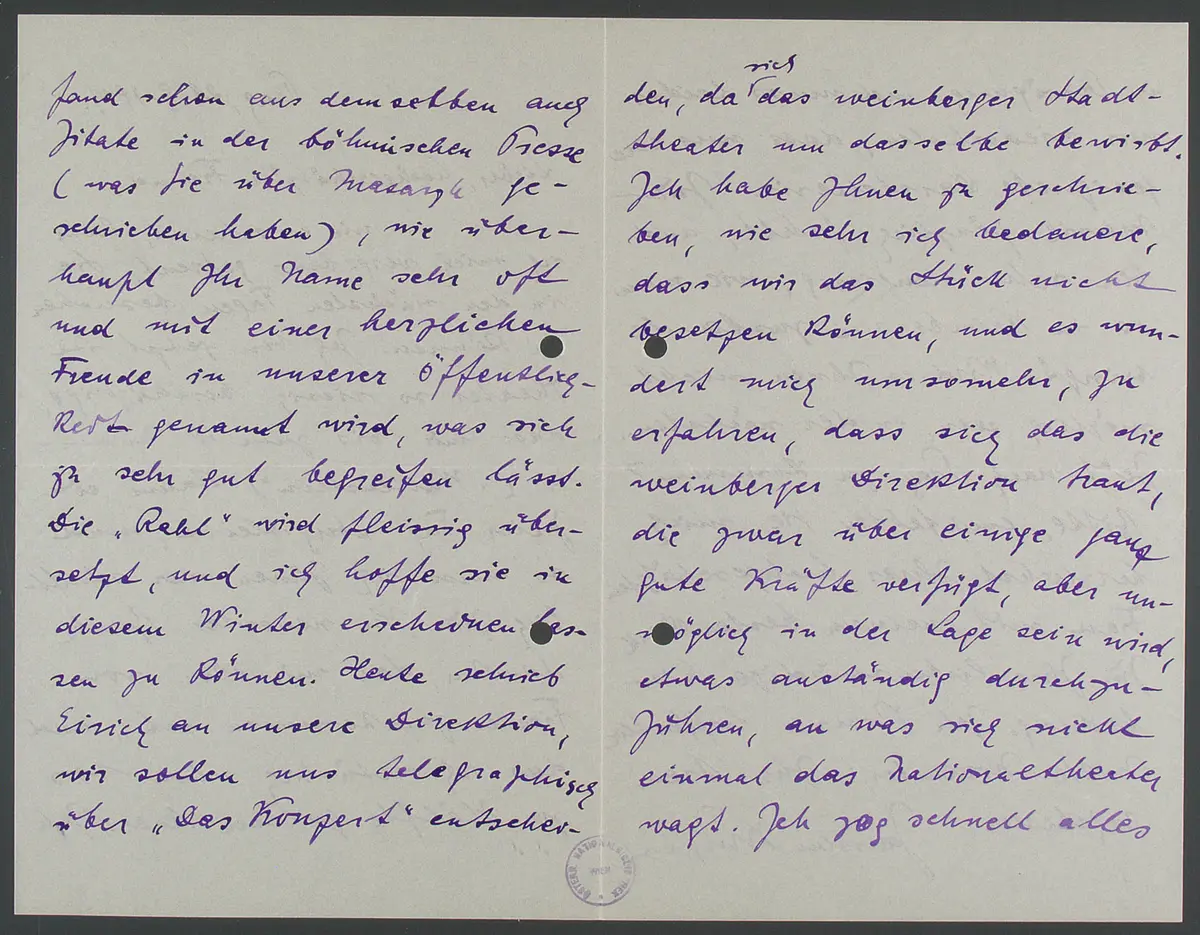 fand schon aus demselben auch
Zitate in der böhmischen Presse
(was Sie über Masaryk ge-
schrieben haben), wie über-
haupt Ihr Name sehr oft
und mit einer herzlichen
Freude in unserer Öffentlich-
keit genannt wird, was sich
ja sehr gut begreifen lässt.
Die „Rahl“ wird fleissig über-
setzt, und ich hoffe sie in
diesem Winter erscheinen las-
sen zu können. Heute schrieb
Eirich an unsere Direktion,
wir sollen uns telegraphisch
über „Das Konzert“ entschei-
sich
den, da das weinberger Stadt-
theater um dasselbe bewirbt.
Ich habe Ihnen ja geschrie-
ben, wie sehr ich bedauere,
dass wir das Stück nicht
besetzen können, und es wun-
dert mich umsomehr, zu
erfahren, dass sich das die
weinberger Direktion traut,
die zwar über einige ganz
gute Kräfte verfügt, aber un-
möglich in der Lage sein wird,
etwas anständig durchzu-
führen, an was sich nicht
einmal das Nationaltheater
wagt. Ich zog schnell alles